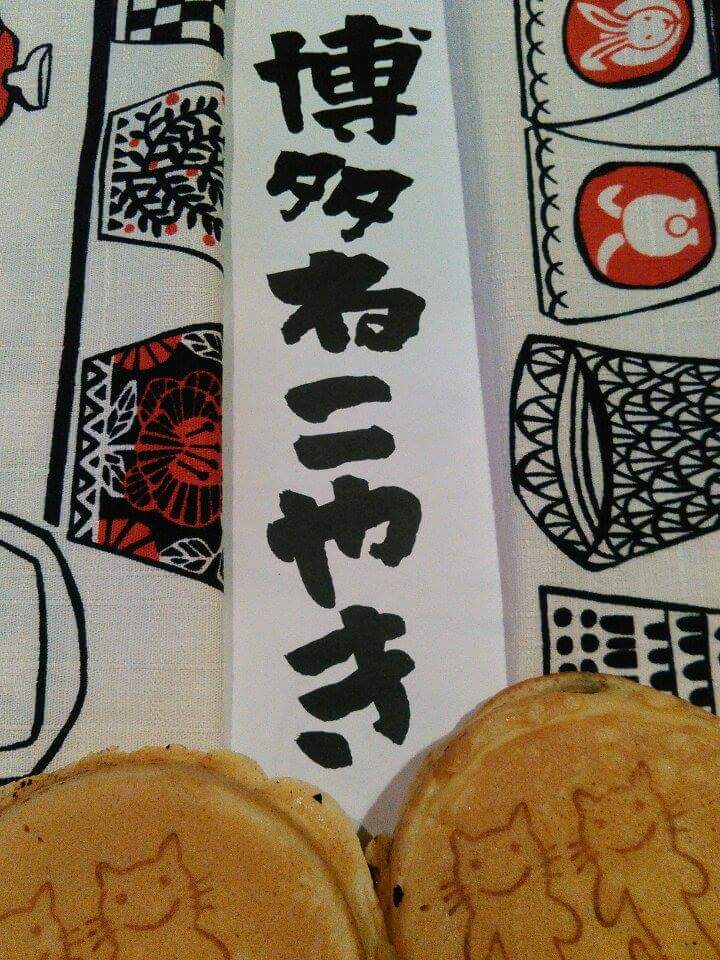 博多ねこやき